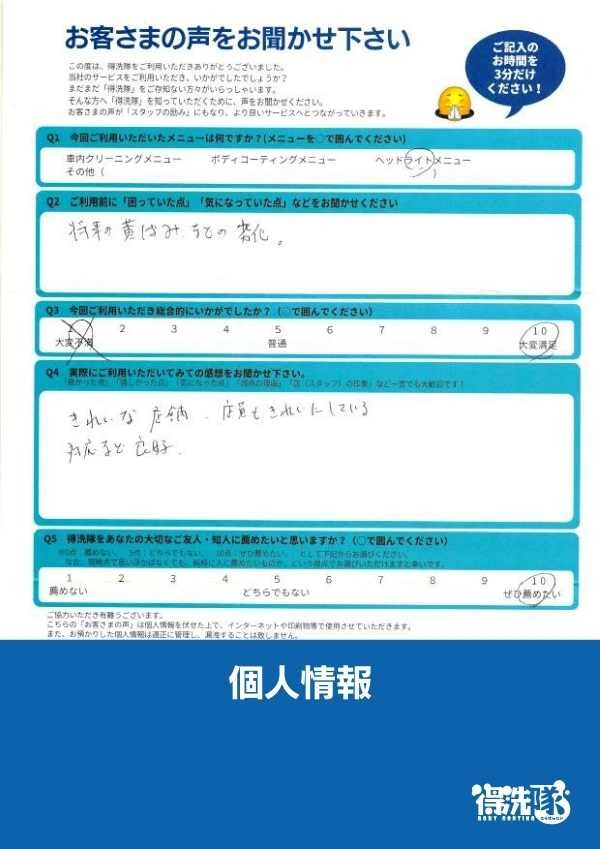 お客さまの声をお聞かせ下さい
ご記入の
お時間を
3分だけ
ください！
この度は、得洗隊をご利用いただきありがとうございました。
当社のサービスをご利用いただき、いかがでしたでしょうか？
まだまだ「得洗隊」をご存知ない方々がいらっしゃいます。
そんな方へ「得洗隊」を知っていただくために、声をお聞かせください。
お客さまの声が「スタッフの励み」にもなり、より良いサービスへとつながっていきます。
Q1 今回ご利用いただいたメニューは何ですか？(メニューを○で囲んでください)
車内クリーニングメニュー ボディコーティングメニュー ヘッドライトメニュー
その他（ ）
Q2 ご利用前に「困っていた点」「気になっていた点」などをお聞かせください
将来の黄ばみ、などの劣化。
Q3 今回ご利用いただき総合的にいかがでしたか？（○で囲んでください）
1 2 3 4 5 6 7 8 9 10
大変不満 普通 大変満足
Q4 実際にご利用いただいてみての感想をお聞かせ下さい。
「良かった点」「嬉しかった点」「気になった点」「満点の理由」「店（スタッフ）の印象」など一言でも大歓迎です！
きれいな店舗、店員もきれいにしている
対応など良好．
Q5 得洗隊をあなたの大切なご友人・知人に薦めたいと思いますか？（○で囲んでください）
※0点：薦めない、 5点：どちらでもない、 10点：ぜひ薦めたい、 として下記からお選びください。
1 2 3 4 5 6 7 8 9 10
薦めない どちらでもない ぜひ薦めたい
ご協力いただき有難うございます。
こちらの「お客さまの声」は個人情報を伏せた上で、インターネットや印刷物等で使用させていただきます。
また、お預かりした個人情報は適正に管理し、漏洩することは致しません。
個人情報
得洗隊
BODY COATING